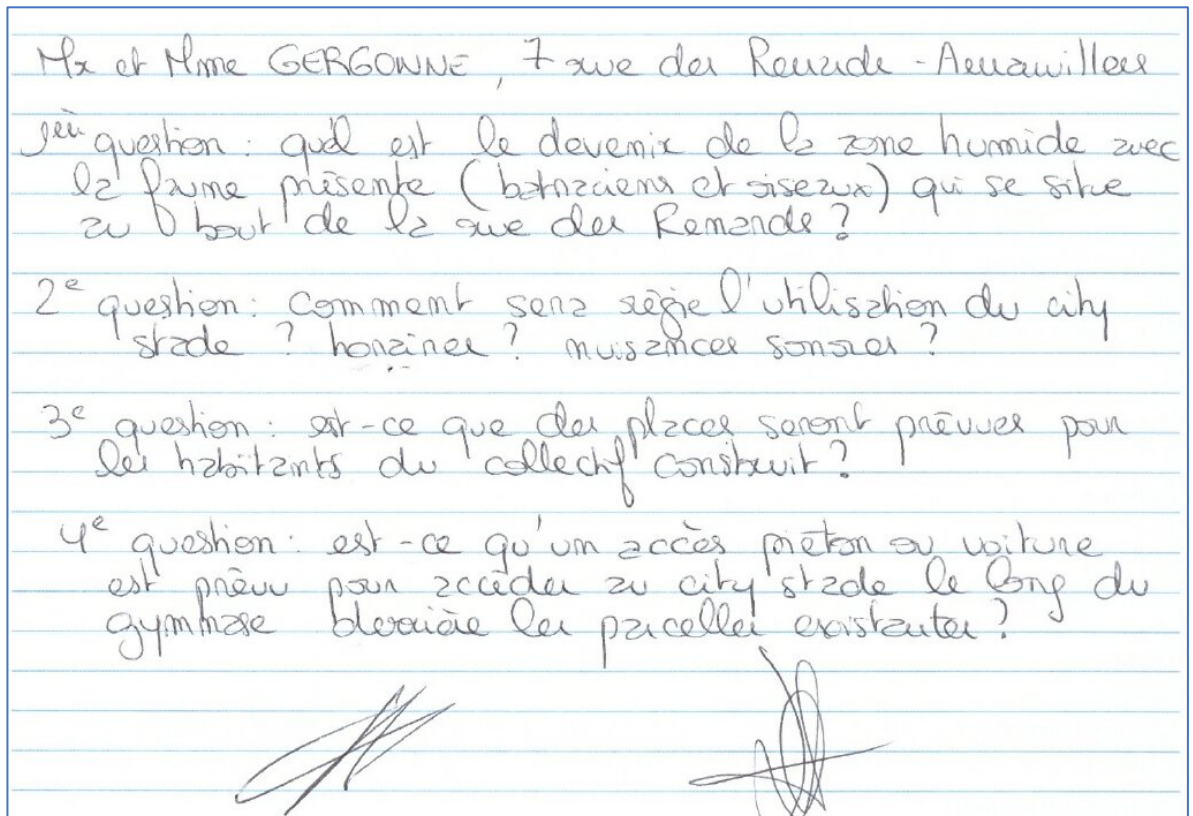 Mr et Mme GERGONNE, 7 rue des Renards - Amanvillers
1ère question : quel est le devenir de la zone humide avec
la faune présente (batraciens et oiseaux) qui se situe
au bout de la rue des Renards ?
2e question : comment sera régie l'utilisation du city
stade ? horaires ? nuisances sonores ?
3e question : est-ce que des places seront prévues pour
les habitants du collectif construit ?
4e question : est-ce qu'un accès piéton ou voiture
est prévu pour accéder au city stade le long du
gymnase derrière les parcelles existantes ?